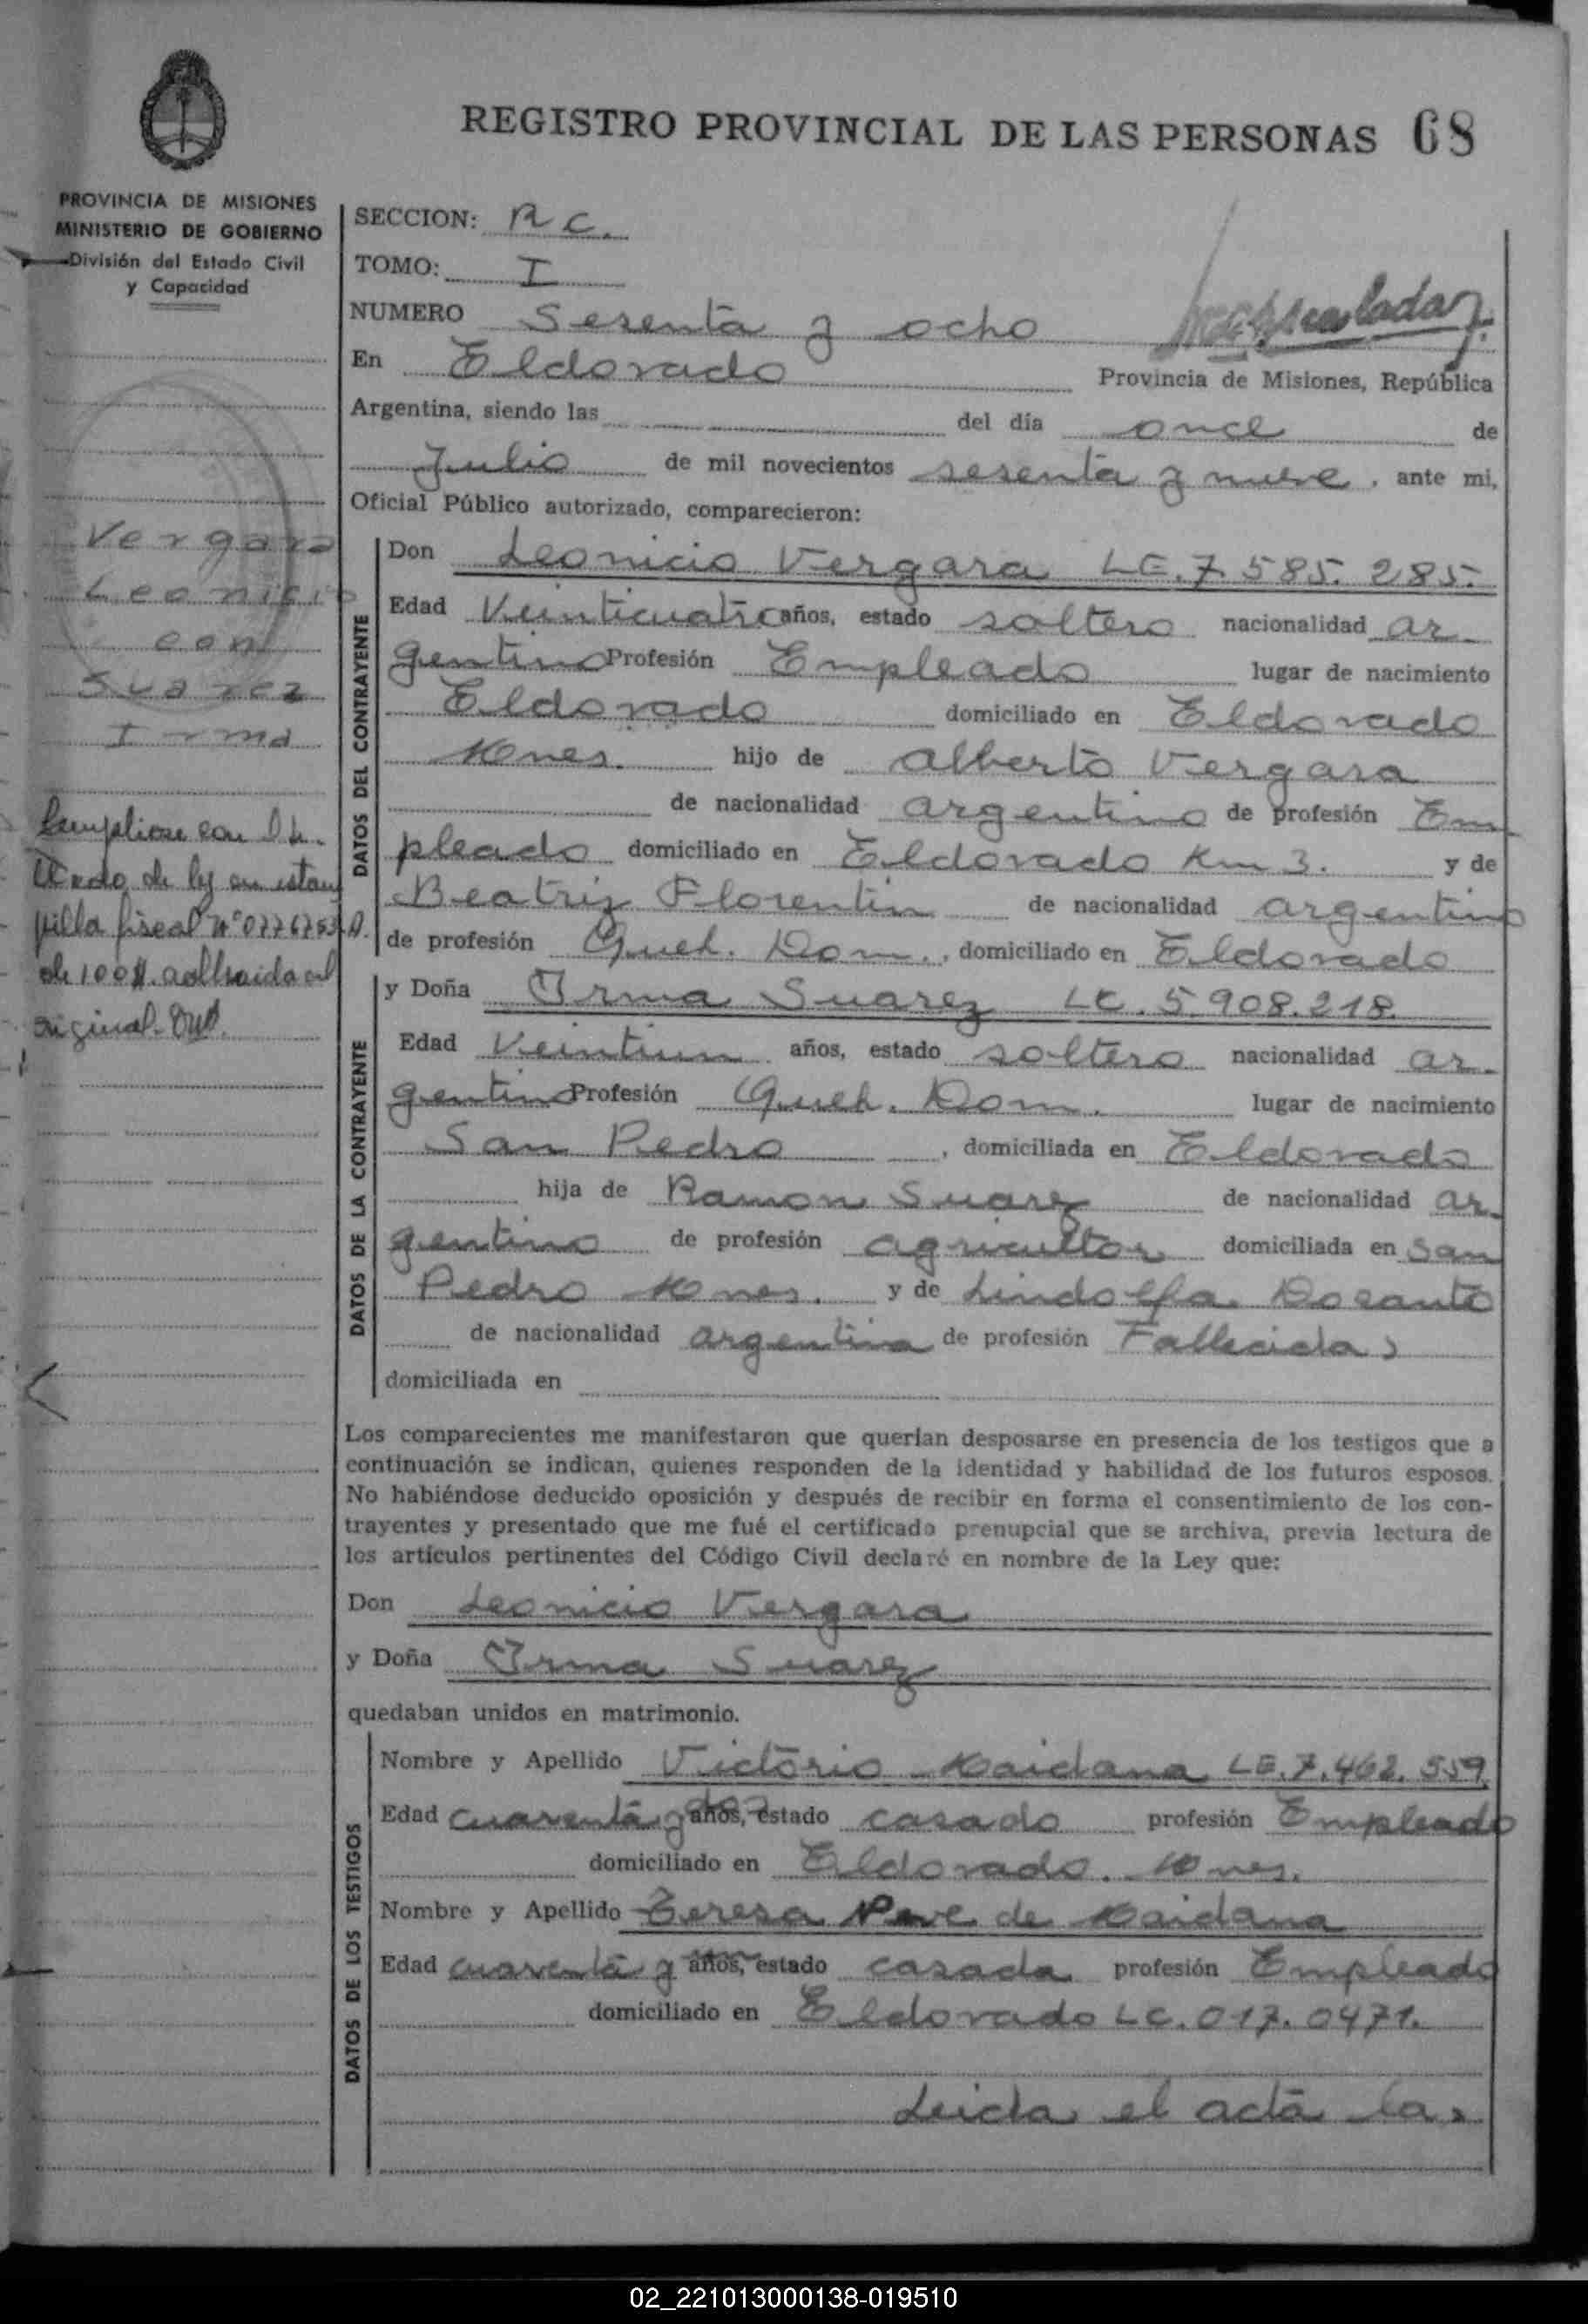 REGISTRO PROVINCIAL DE LAS PERSONAS 68
PROVINCIA DE MISIONES
MINISTERIO DE GOBIERNO
División del Estado Civil
y Capacidad
SECCION: R C.
TOMO: I
NUMERO Sesenta y ocho
En Eldorado Provincia de Misiones, República
Argentina, siendo las del día once de
Julio de mil novecientos sesenta y nueve, ante mi,
Oficial Público autorizado, comparecieron:
Vergara
Leonicio
con
Suarez
Irma
de ley en estam
pilla fiscal Nº
de 100 $. adherida al
original.
DATOS DEL CONTRAYENTE
Don Leonicio Vergara LE. 7.585.285.
Edad Veinticuatro años, estado soltero nacionalidad ar-
gentino Profesión Empleado lugar de nacimiento
Eldorado domiciliado en Eldorado
Mnes. hijo de Alberto Vergara
de nacionalidad argentino de profesión Em-
pleado domiciliado en Eldorado Km 3. y de
Beatriz Florentin de nacionalidad argentino
de profesión Queh. Dom., domiciliado en Eldorado
DATOS DE LA CONTRAYENTE
y Doña Irma Suarez LC. 5.908.218.
Edad Veintiun años, estado soltero nacionalidad ar-
gentino Profesión Queh. Dom. lugar de nacimiento
San Pedro, domiciliada en Eldorado
hija de Ramon Suarez de nacionalidad ar-
gentino de profesión agricultor domiciliada en San
Pedro Mnes. y de Lindolfa
de nacionalidad argentina de profesión Fallecida
domiciliada en
Los comparecientes me manifestaron que querían desposarse en presencia de los testigos que a
continuación se indican, quienes responden de la identidad y habilidad de los futuros esposos.
No habiéndose deducido oposición y después de recibir en forma el consentimiento de los con-
trayentes y presentado que me fué el certificado prenupcial que se archiva, previa lectura de
los artículos pertinentes del Código Civil declaré en nombre de la Ley que:
Don Leonicio Vergara
y Doña Irma Suarez
quedaban unidos en matrimonio.
DATOS DE LOS TESTIGOS
Nombre y Apellido Victorio Maidana LE. 7.462.559.
Edad cuarenta y dos años, estado casado profesión Empleado
domiciliado en Eldorado. Mnes.
Nombre y Apellido Teresa de Maidana
Edad cuarenta y años, estado casada profesión Empleado
domiciliado en Eldorado LC. 017.0471.
Leida el acta la
02_221013000138-019510